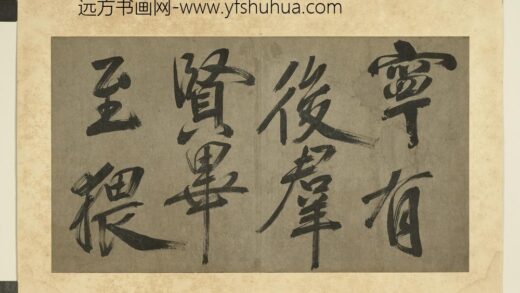 远方书画网-www.yfshuhua.com
寧有
後羣
賢畢
至猥